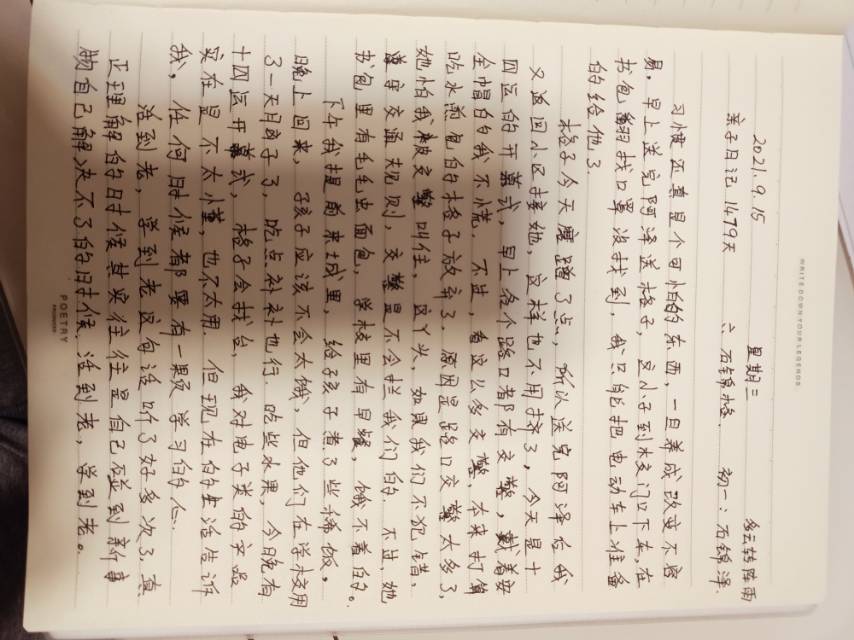 2021.9.15 星期三 多云转阵雨
亲子日记 1479天 六:石锦格. 初一:石锦泽.
习惯还真是个可怕的东西,一旦养成改变不容
易,早上送完阿泽送格子,这小子到校门口下车,在
书包翻找口罩没找到,我只能把电动车上准备
的给他了.
格子今天磨蹭了点,所以送完阿泽后我
又返回小区接她,这样也不用挤了,今天是十
四运的开幕式,早上各个路口都有交警,戴着安
全帽的我不慌.不过,看这么多交警,本来打算
吃水煎包的格子放弃了.原因是路口交警太多了,
她怕我被交警叫住.这丫头,如果我们不犯错,
遵守交通规则,交警是不会拦我们的.不过,她
书包里有毛毛虫面包,学校里有早餐,饿不着的。
下午我提前来城里,给孩子煮了些稀饭,
晚上回来,孩子应该不会太饿,但他们在学校用
了一天脑子了,吃点补补也行.吃些水果,今晚有
十四运开幕式,格子会找台,我对电子类的产品
实在是不太懂,也不太用.但现在的生活告诉
我,任何时候都要有一颗学习的心.
活到老,学到老这句话听了好多次了,真
正理解的时候其实往往是自己碰到新事
物自己解决不了的时候.活到老,学到老。
WRITE DOWN YOUR LEGENDS
POETRY